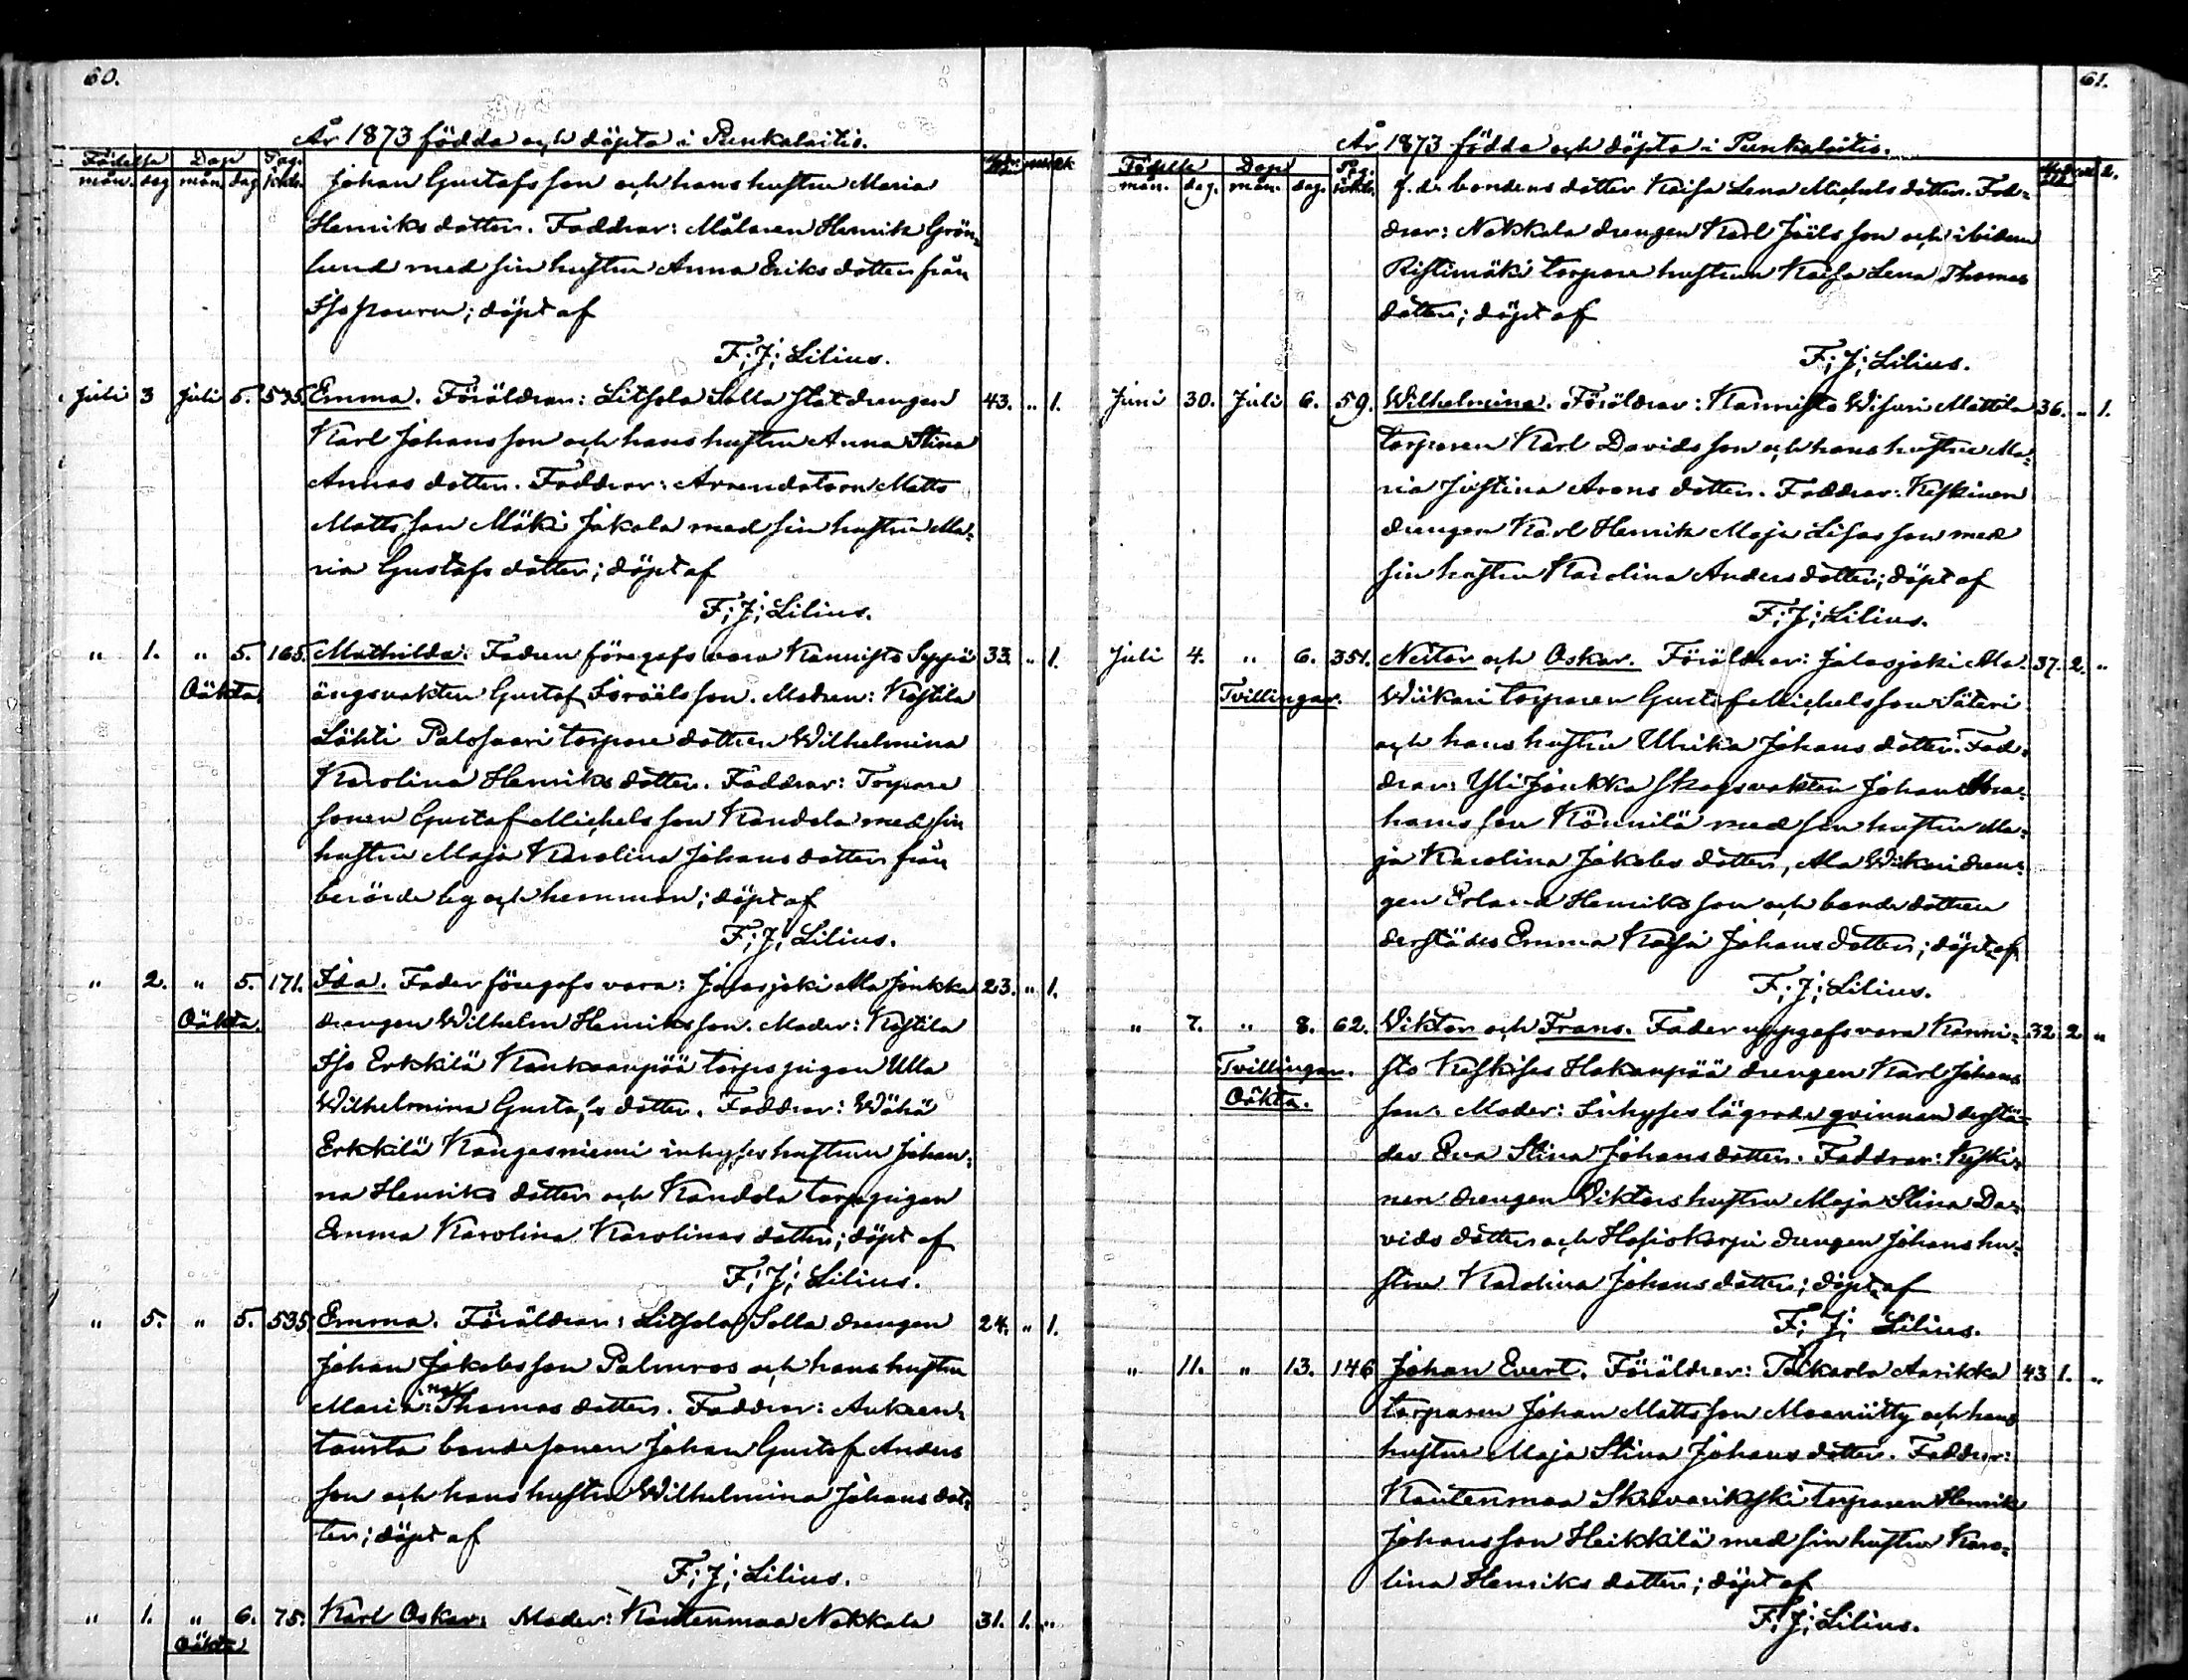 60.
År 1873 födda och döpta i Punkalaitio.
Födelse Dop Pag.
mån. dag mån. dag
Johan Gustafsson och hans hustru Maria
Henriksdotter. Faddrar: Målaren Henrik Grön-
lund med sin hustru Anna Eriksdotter från
döpt af
F; J; Lilius.
Juli 3 Juli 5. 535. Emma. Föräldrar: Litsola Solla statdrengen 43. " 1.
Karl Johansson och hans hustru Anna Stina
Annasdotter. Faddrar: Arrendatorn Matts
Mattsson Mäki Jakola med sin hustru Ma-
ria Gustafsdotter; döpt af
F; J; Lilius.
" 1. " 5. 165. Mathilda. Fadren föregafs vara Kannisto Seppä 33. " 1.
Oäkta. ängsvakten Gustaf Israelsson. Modren: Kostila
Lähti Palosaari torparedottren Wilhelmina
Karolina Henriksdotter. Faddrar: Torpare
sonen Gustaf Michelsson Kandola med sin
hustru Maja Karolina Johansdotter från
berörde by och hemman; döpt af
F; J; Lilius.
" 2. " 5. 171. Ida. Fader föregafs vara: Jalasjoki Ala Jönkka 23. " 1.
Oäkta. drengen Wilhelm Henriksson. Moder: Kostila
Iso Erkkilä Kankaanpää torpspigan Ulla
Wilhelmina Gustafsdotter. Faddrar: Wähä
Erkkilä Kangasniemi inhyseshustrun Johan-
na Henriksdotter och Kandola torpspigan
Emma Karolina Karolinasdotter; döpt af
F; J; Lilius.
" 5. " 5. 535. Emma. Föräldrar: Litsola Solla drengen 24. " 1.
Johan Jakobsson Palmros och hans hustru
Maria Thomasdotter. Faddrar: Aukeen-
tausta bondesonen Johan Gustaf Anders
son och hans hustru Wilhelmina Johansdot-
ter; döpt af
F; J; Lilius.
" 1. " 6. 75. Karl Oskar. Moder: Kautenmaa Nakkala 31. 1. "
Oäkta
61.
År 1873 födda och döpta i Punkalaitio.
Födelse Dop Pag.
mån. dag. mån. dag.
f.d. bondens dotter Kaisa Lena Michelsdotter. Fad-
drar: Nakkala drengen Karl Joëlsson och ibidem
Ristimäki torpare hustrun Kaisa Lena Thomas
dotter; döpt af
F; J; Lilius.
Juni 30. Juli 6. 59. Wilhelmina. Föräldrar: Kannisto Wisuri Mattila 36. " 1.
torparen Karl Davidsson och hans hustru Ma-
ria Justina Aronsdotter. Faddrar: Keskinen
drengen Karl Henrik Maja Lisasson med
sin hustru Karolina Andersdotter; döpt af
F; J; Lilius.
Juli 4. " 6. 351. Nestor och Oskar. Föräldrar: Jalasjoki Ala 37. 2. "
Tvillingar. Wiikari torparen Gustaf Michelsson Säteri
och hans hustru Ulrika Johansdotter. Fad-
drar: Yli Jönkka skogsvakten Johan Abra-
hamsson Könnilä med sin hustru Ma-
ja Karolina Jakobsdotter, Ala Wiikari dren-
gen Erland Henriksson och bonde dottren
derstädes Emma Kaisa Johansdotter; döpt af
F; J; Lilius.
" 7. " 8. 62. Viktor och Frans. Fader uppgafs vara Kanni- 32 2 "
Tvillingar. sto Keskises Hakanpää drengen Karl Johans
Oäkta. son. Moder: Inhyses lägrade qvinnan derstä-
des Eva Stina Johansdotter. Faddrar: Keski-
nen drengen Viktors hustru Maja Stina Da-
vidsdotter och drengen Johans hu-
stru Karolina Johansdotter; döpt af
F; J; Lilius.
" 11. " 13. 146 Johan Evert. Föräldrar: Aarikka 43 1. "
torparen Johan Mattsson Maaniitty och hans
hustru Maja Stina Johansdotter. Faddrar:
Kautenmaa torparen Henrik
Johansson Heikkilä med sin hustru Karo-
lina Henriksdotter; döpt af
F; J; Lilius.